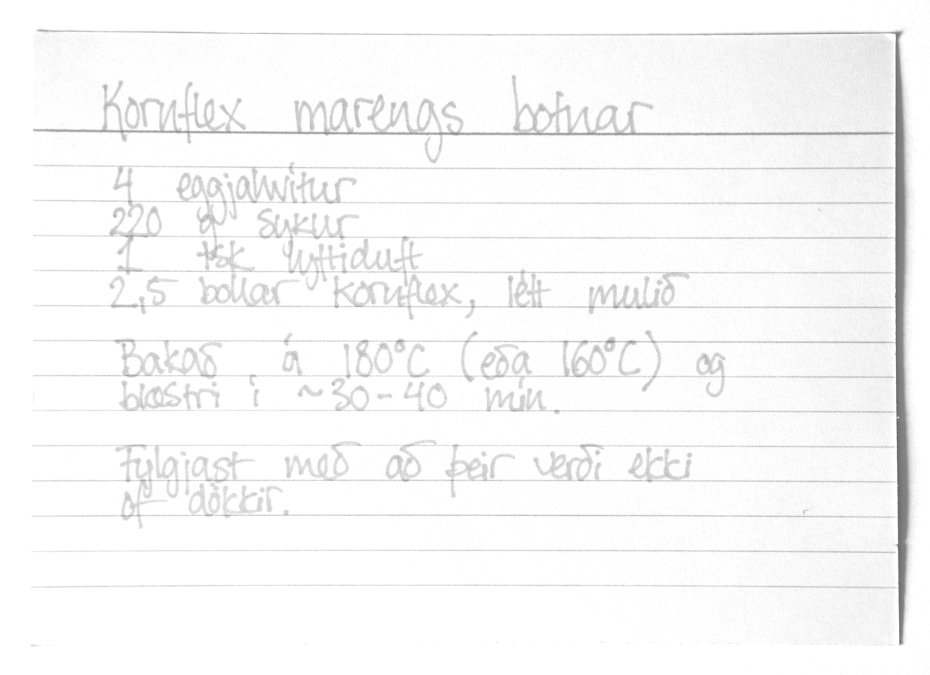 Kornflex marengs botnar
4 eggjahvítur
220 g sykur
1 tsk lyftiduft
2,5 bollar kornflex, létt mulið
Bakað á 180°C (eða 160°C) og
blæstri í ~30-40 mín.
Fylgjast með að þeir verði ekki
of dökkir.